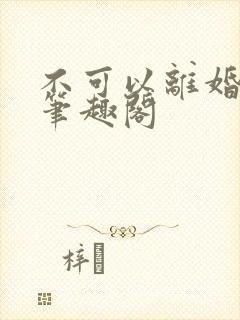 不可以離婚
筆趣閣
梓